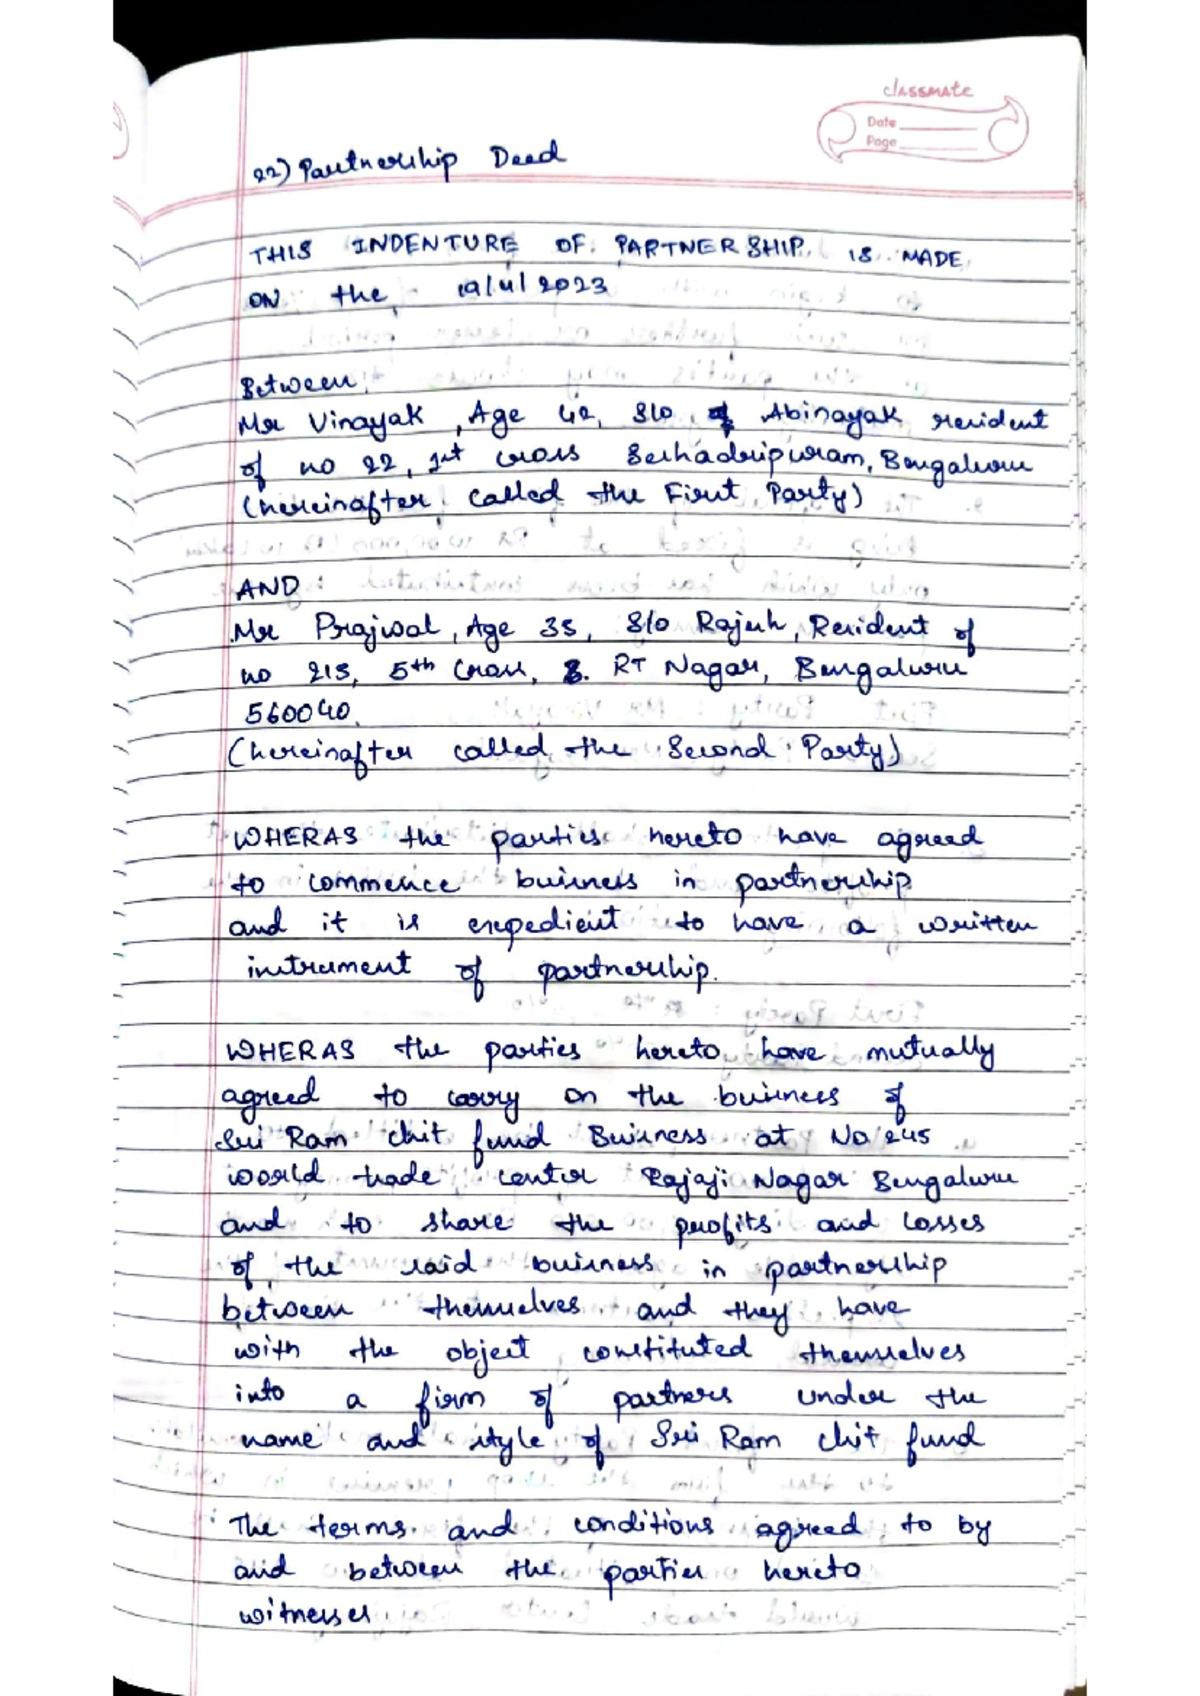 classmate
Date
Page
22) Partnership Deed
THIS INDENTURE OF PARTNERSHIP IS MADE
ON the 19/4/2023
Between
Mr Vinayak, Age 42, S/o Abinayak resident
of no 22, 1st cross Seshadripuram, Bengaluru
(hereinafter called the First Party)
AND
Mr Prajwal, Age 35, S/o Rajesh, Resident of
no 215, 5th Cross, RT Nagar, Bengaluru
560040
(hereinafter called the Second Party)
WHERAS the parties hereto have agreed
to commence business in partnership
and it is expedient to have a written
instrument of partnership.
WHERAS the parties hereto have mutually
agreed to carry on the business of
Sri Ram chit fund Business at No 245
world trade center Rajaji Nagar Bengaluru
and to share the profits and losses
of the said business in partnership
between themselves and they have
with the object constituted themselves
into a firm of partners under the
name and style of Sri Ram chit fund
The terms and conditions agreed to by
and between the parties hereto
witnesses